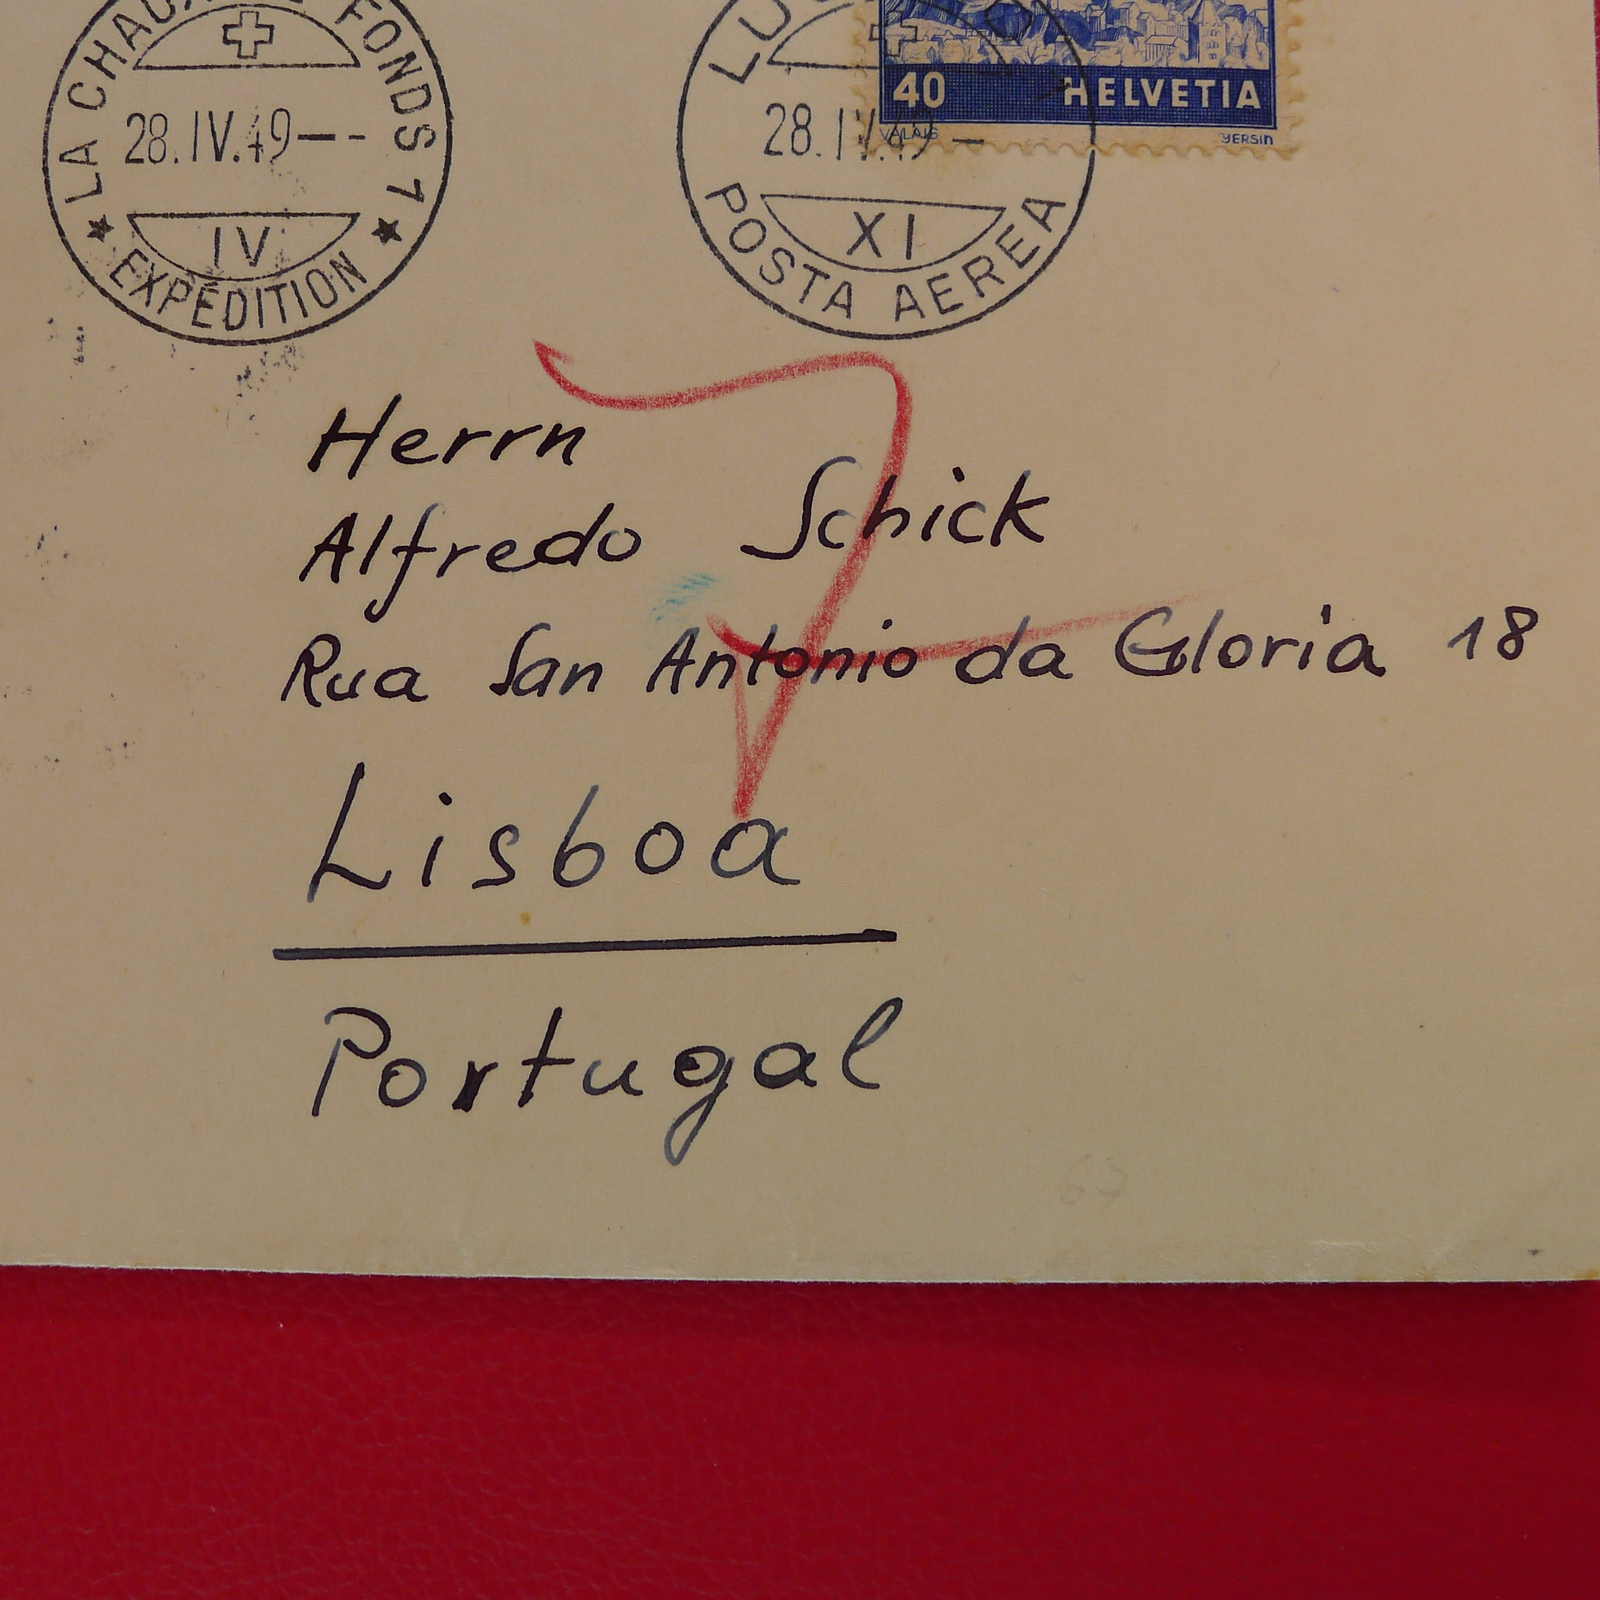 LA CHAUX FONDS 1
28.IV.49
IV
EXPÉDITION
28.IV.49
XI
POSTA AEREA
40 HELVETIA
VALAIS YERSIN
Herrn
Alfredo Schick
Rua San Antonio da Gloria 18
Lisboa
Portugal